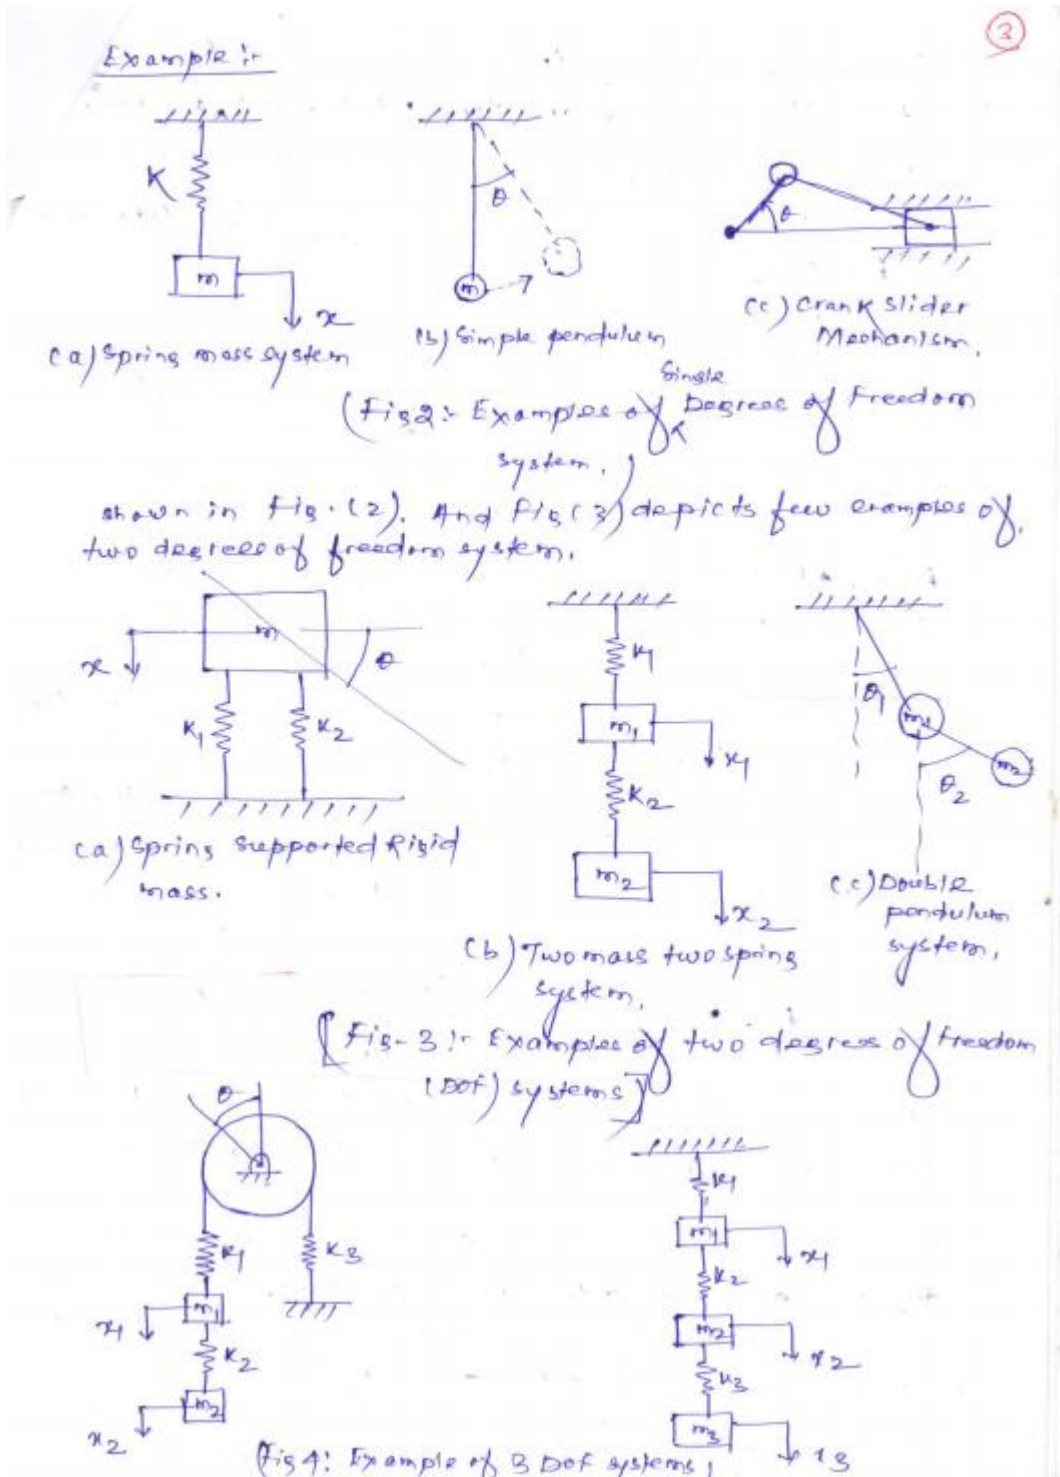 3
Example :-
K
m
x
θ
m
θ
(a) Spring mass system
(b) Simple pendulum
(c) Crank slider
Mechanism.
Single
(Fig 2:- Examples of Degrees of Freedom
system.)
shown in Fig. (2). And Fig (3) depicts few examples of
two degrees of freedom system.
m
x
θ
K1
K2
K1
m1
x1
K2
m2
x2
θ1
m1
θ2
m2
(a) Spring supported Rigid
mass.
(b) Two mass two spring
system.
(c) Double
pendulum
system.
[Fig-3 :- Examples of two degrees of freedom
(DOF) systems]
θ
K1
K3
m1
x1
K2
m2
x2
K1
m1
x1
K2
m2
x2
K3
m3
x3
(Fig 4: Example of 3 DOF systems)